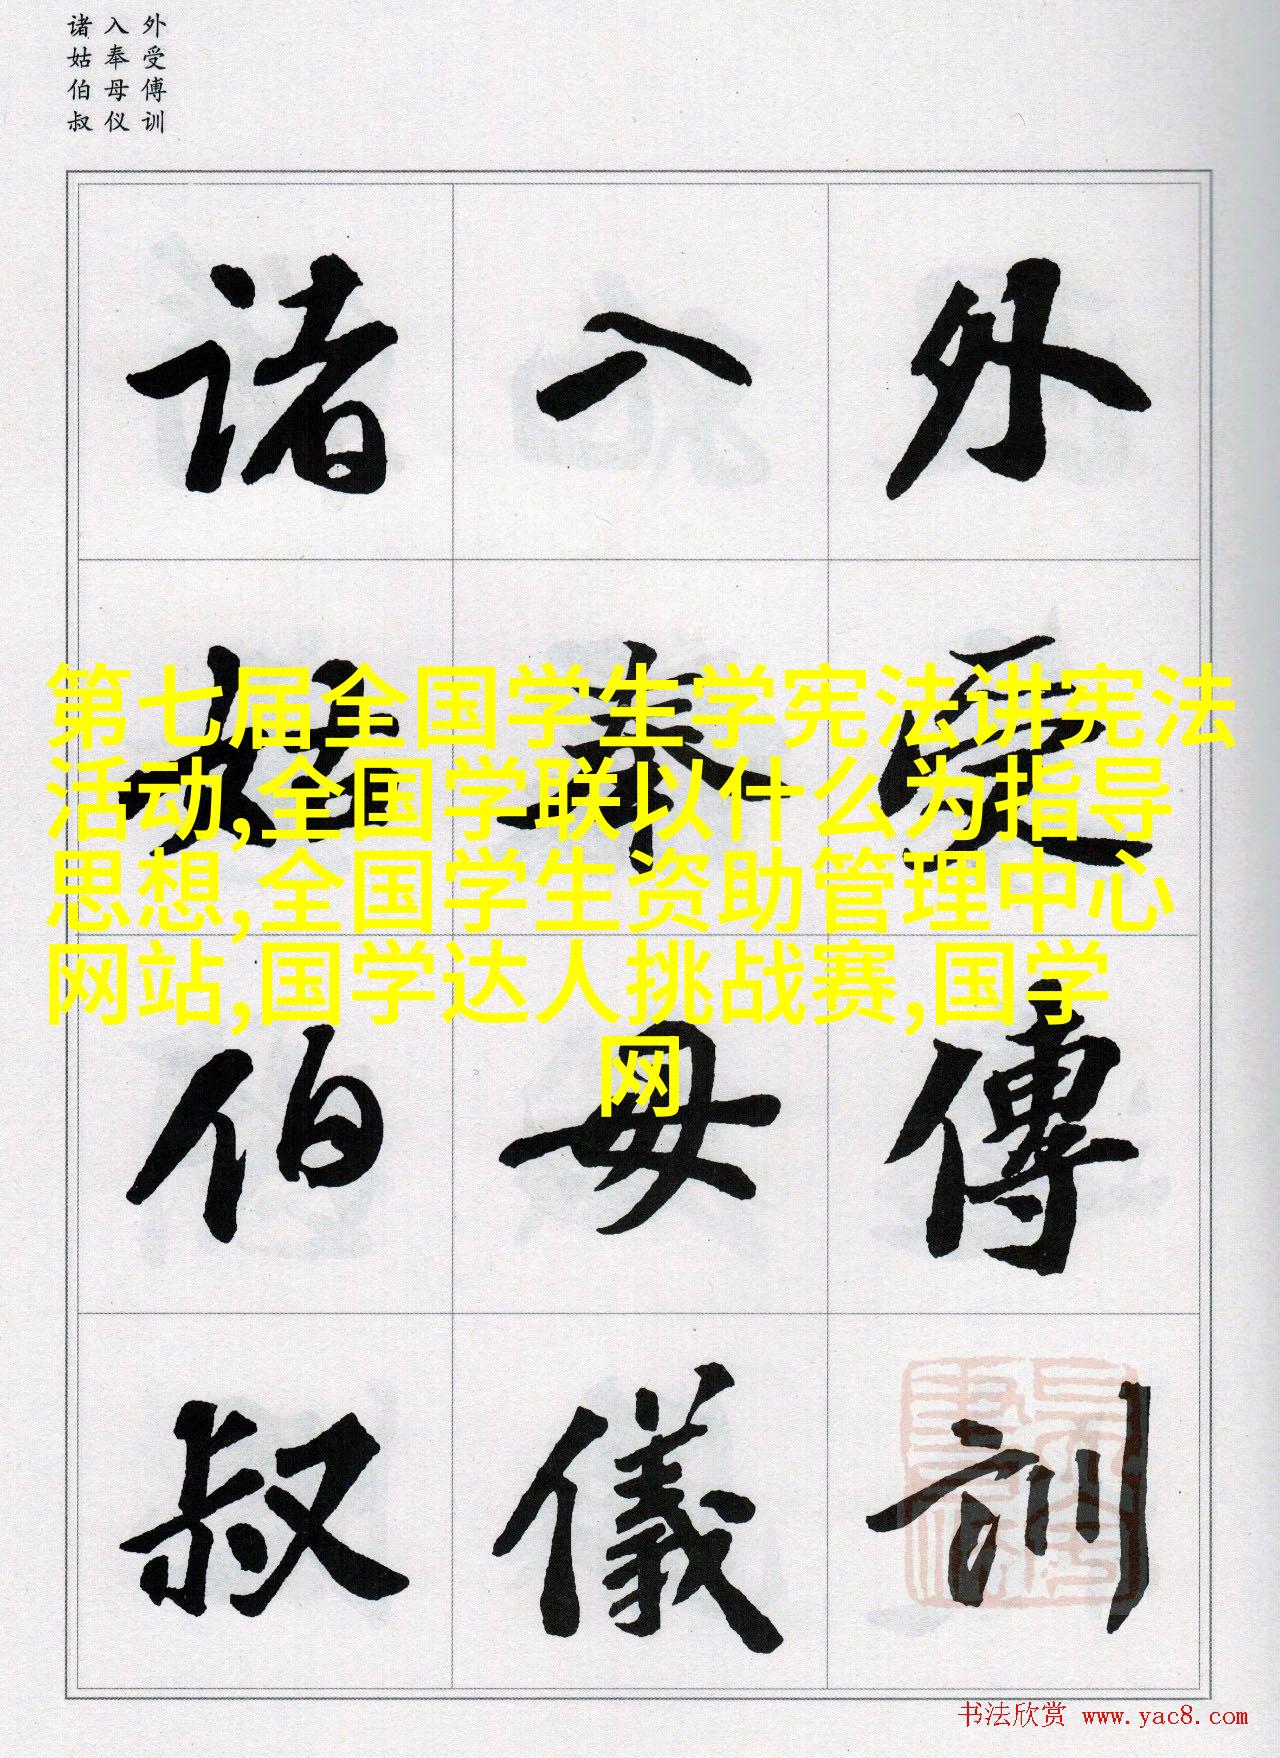 外受傅训
入奉母仪
诸姑伯叔
外受傅訓
入奉母儀
诸姑伯叔
第七届全国学生学宪法讲宪法
活动,全国学联以什么为指导
思想,全国学生资助管理中心
网站,国学达人挑战赛,国学
网
书法欣赏 www.yac8.com